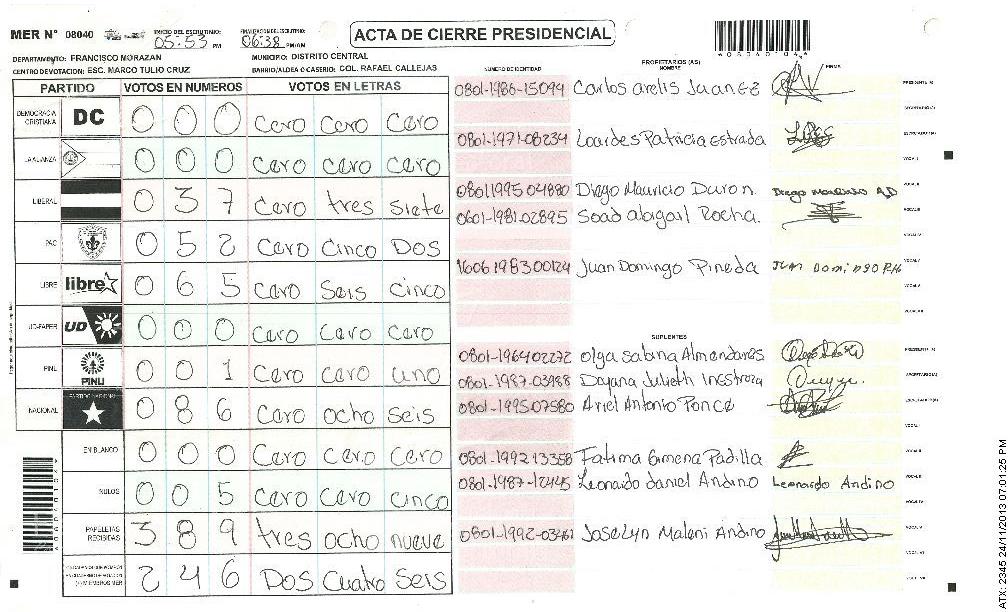 MER N° 08040
INICIO DEL ESCRUTINIO: 05:53 PM
FINALIZACION DEL ESCRUTINIO: 06:38 PM/AM
ACTA DE CIERRE PRESIDENCIAL
DEPARTAMENTO: FRANCISCO MORAZAN
MUNICIPIO: DISTRITO CENTRAL
CENTRO DE VOTACION: ESC. MARCO TULIO CRUZ
BARRIO/ALDEA O CASERIO: COL. RAFAEL CALLEJAS
PARTIDO VOTOS EN NUMEROS VOTOS EN LETRAS
DEMOCRACIA CRISTIANA DC 0 0 0 Cero Cero Cero
LA ALIANZA 0 0 0 Cero Cero Cero
LIBERAL 0 3 7 Cero tres Siete
PAC 0 5 2 Cero Cinco Dos
LIBRE libre 0 6 5 Cero Seis Cinco
UD-FAPER UD 0 0 0 Cero Cero Cero
PINU PINU 0 0 1 Cero Cero uno
NACIONAL PARTIDO NACIONAL 0 8 6 Cero ocho Seis
EN BLANCO 0 0 0 Cero Cero Cero
NULOS 0 0 5 Cero Cero Cinco
PAPELETAS RECIBIDAS 3 8 9 tres ocho nueve
2 4 6 Dos Cuatro Seis
NUMERO DE IDENTIDAD PROPIETARIOS (AS) NOMBRE FIRMA
0801-1986-15099 Carlos arelis Juanez
0801-1971-08234 Lourdes Patricia Estrada
0801199504880 Diego Mauricio Duron
0601-1981-02895 Soad abigail Rocha.
1606198300124 Juan Domingo Pineda
SUPLENTES
0801-196402272 olga Sabina Almendares
0801-1987-03988 Dayana Julieth Inestroza
0801-1995-07580 Ariel Antonio Ponce
0801-199213358 Fatima Gimena Padilla
0801-1987-12445 Leonardo daniel Andino Leonardo Andino
Joselyn Maleni Andino
ATX: 2345 24/11/2013 07:01:25 PM